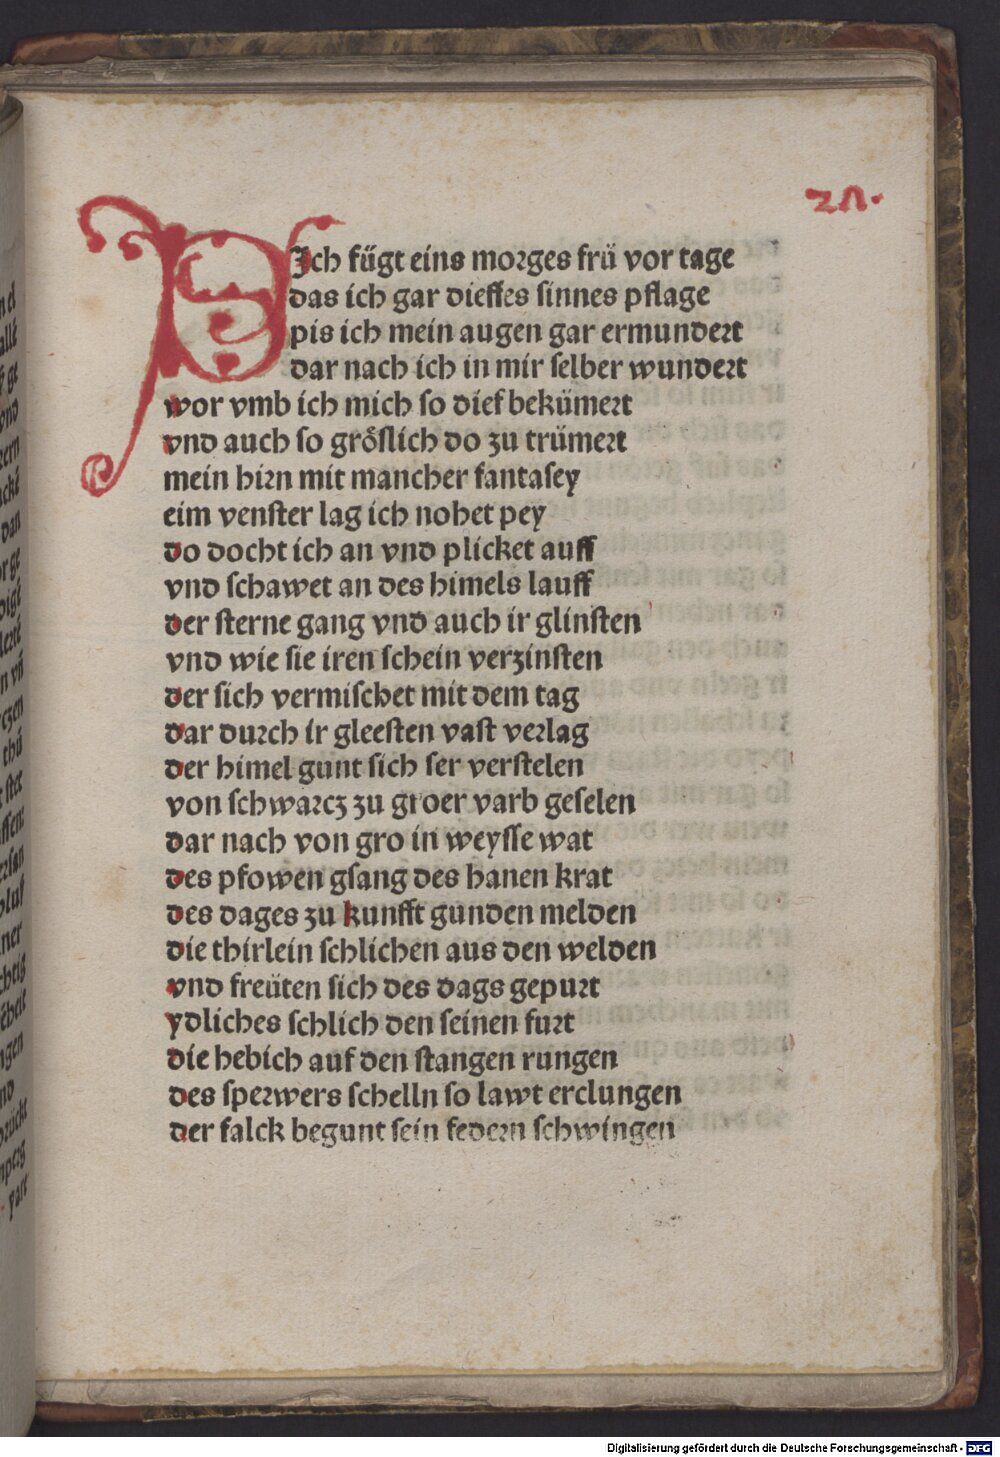 21.
SIch fügt eins morges frü vor tage
das ich gar dieffes sinnes pflage
pis ich mein augen gar ermundert
dar nach ich in mir selber wundert
wor vmb ich mich so dief bekümert
vnd auch so gröslich do zu trümert
mein hirn mit mancher fantasey
eim venster lag ich nohet pey
do docht ich an vnd plicket auff
vnd schawet an des himels lauff
der sterne gang vnd auch ir glinsten
vnd wie sie iren schein verzinsten
der sich vermischet mit dem tag
dar durch ir gleesten vast verlag
der himel gunt sich ser verstelen
von schwarcz zu groer varb geselen
dar nach von gro in weysse wat
des pfowen gsang des hanen krat
des dages zu kunfft gunden melden
die thirlein schlichen aus den welden
vnd freüten sich des dags gepurt
ydliches schlich den seinen furt
die hebich auf den stangen rungen
des sperwers schelln so lawt erclungen
der falck begunt sein federn schwingen
Digitalisierung gefördert durch die Deutsche Forschungsgemeinschaft - DFG